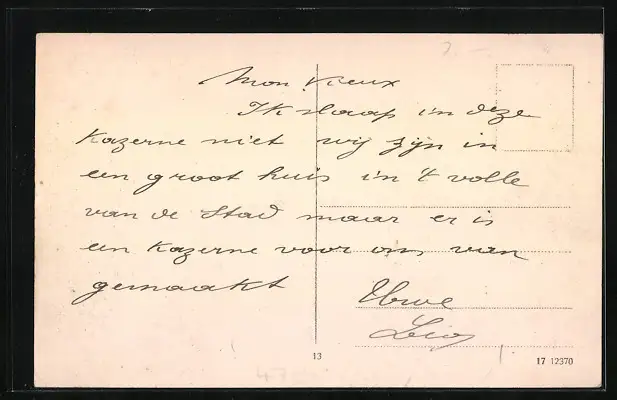 Mon Vieux
Ik slaap in deze
kazerne niet wij zijn in
een groot huis in 't volle
van de Stad maar er is
een kazerne voor ons van
gemaakt
Uwe
Leo
13
17 12370